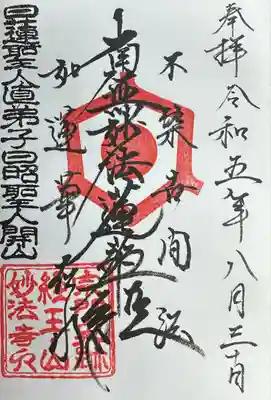 奉拝 令和五年八月三十日
不染世間法
南無妙法蓮華経
如蓮華在水
日蓮聖人直弟子日昭聖人開山
経王山
妙法寺